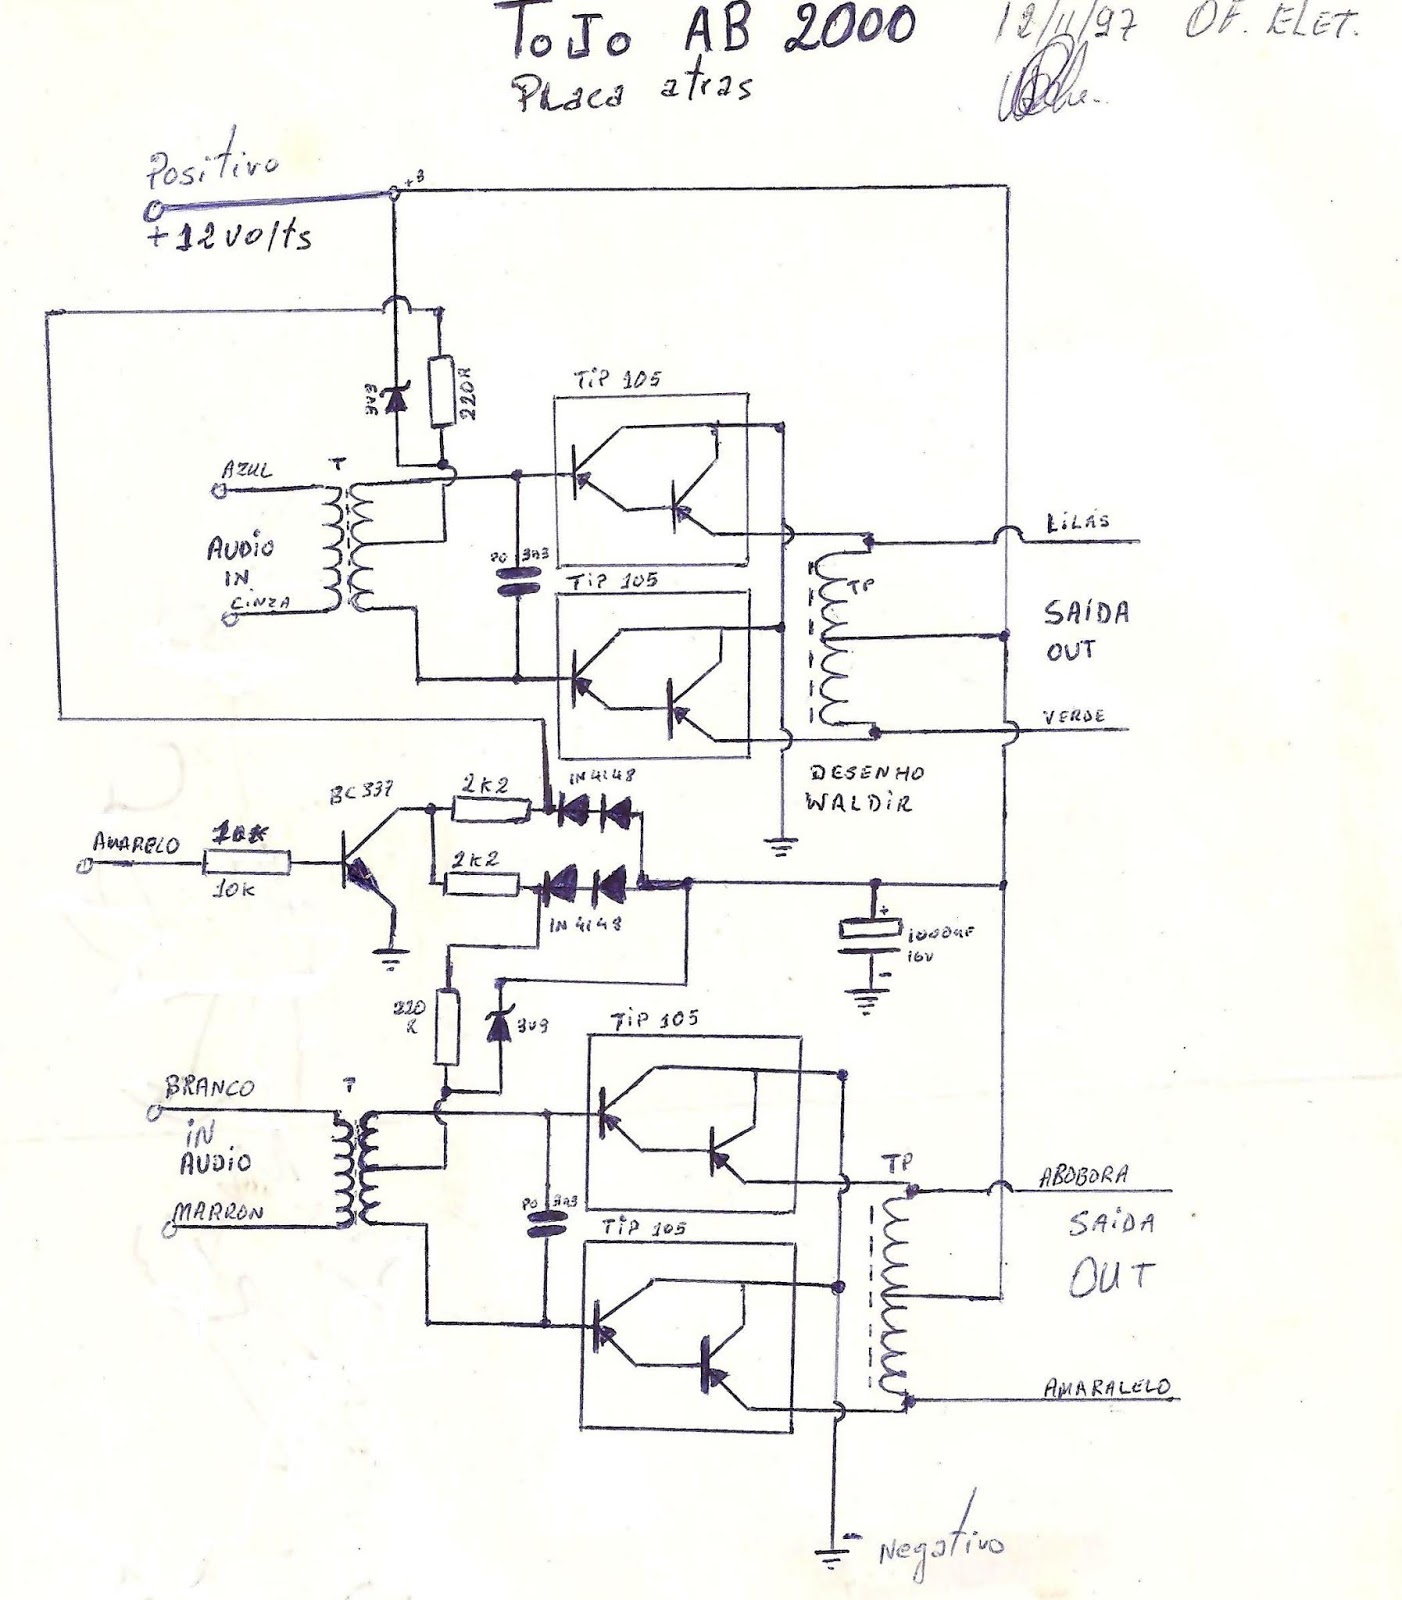 ToJo AB 2000
12/11/97 OF. ELET.
Placa atras
Positivo
+B
+12 volts
3V9
220R
TiP 105
AZUL
T
AUDiO
IN
CiNZA
PO 3n3
TiP 105
LiLÁS
TP
SAíDA
OUT
VERDE
DESENHO
WALDiR
BC 337
2K2
IN4148
AMARELO
10K
10K
2K2
IN4148
+
1000MF
16V
-
220
R
3V9
TiP 105
BRANCO
T
iN
AUDiO
MARRON
PO 3n3
TiP 105
TP
ABOBORA
SAiDA
OUT
AMARALELO
- Negativo